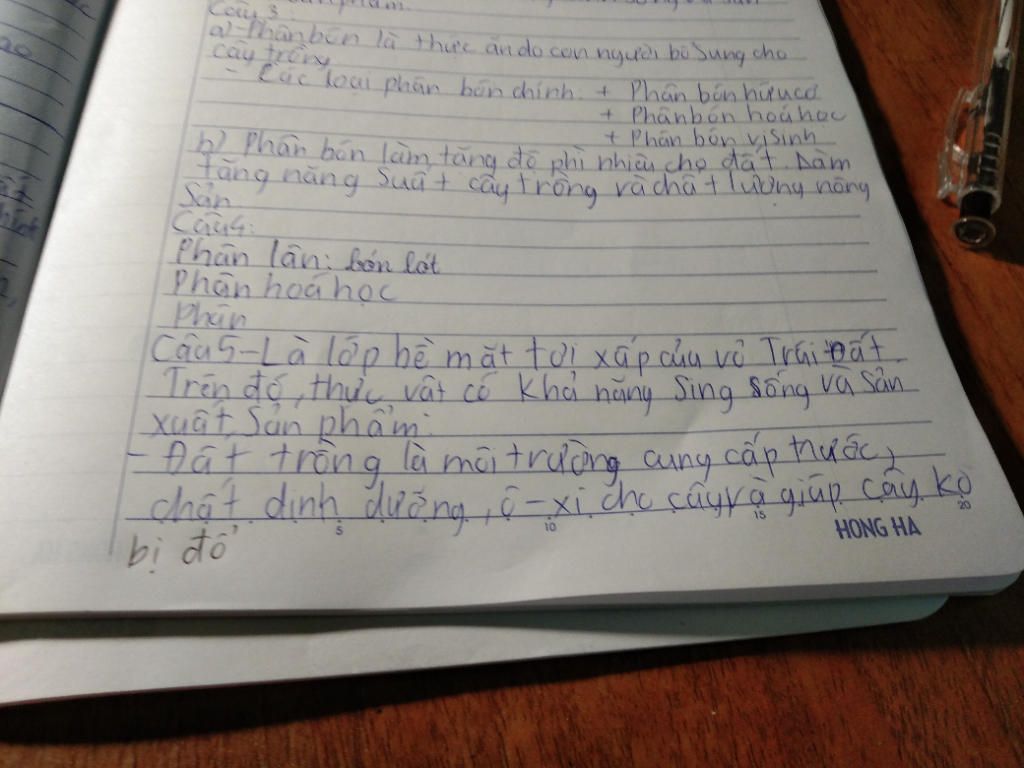 Câu 3:
a) Phân bón là thức ăn do con người bổ sung cho
cây trồng
- Các loại phân bón chính: + Phân bón hữu cơ
+ Phân bón hoá học
+ Phân bón vi sinh
b) Phân bón làm tăng độ phì nhiêu cho đất. Làm
tăng năng suất cây trồng và chất lượng nông
sản
Câu 4:
Phân lân: bón lót
Phân hoá học
Phân
Câu 5 - Là lớp bề mặt tơi xấp của vỏ Trái Đất.
Trên đó, thực vật có khả năng sing sống và sản
xuất sản phẩm.
- Đất trồng là môi trường cung cấp nước,
chất dinh dưỡng, ô-xi cho cây và giúp cây ko
5 10 15 20
HONG HA
bị đổ